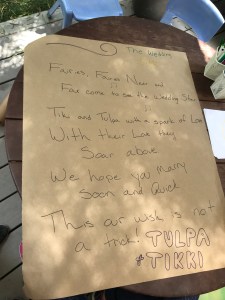 The Wedding
Fairies, Fairies Near and
Far come to see the Wedding Star
Tiki and Tulpa with a spark of Love
With their Love they
Soar above
We hope you Marry
Soon and Quick
This our wish is not
a trick! TULPA
& TIKKI